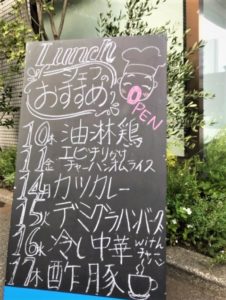 Lunch
シェフの
おすすめ
OPEN
10木 油淋鶏
11金 エビチリかけ
チャーハンオムライス
14月 カツカレー
15火 デミグラハンバーグ
16水 冷し中華 with
17木 酢豚